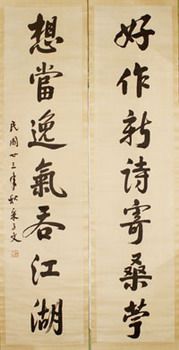 好作新诗寄桑苧
想當逸氣吞江湖
民國廿三年秋